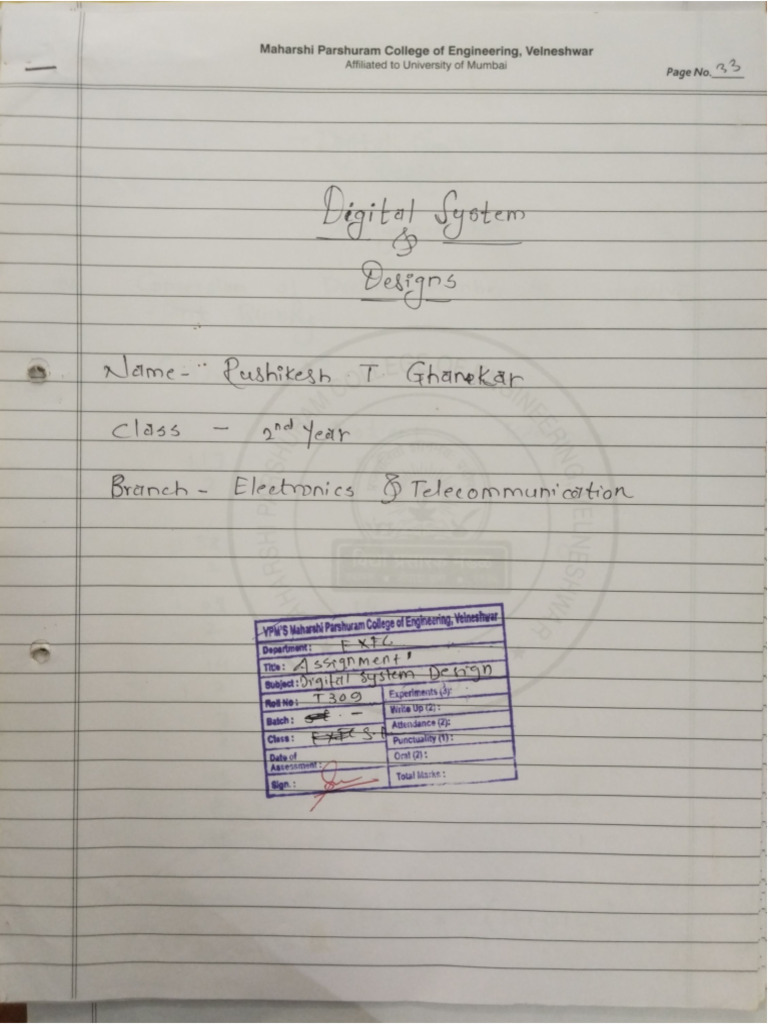 Maharshi Parshuram College of Engineering, Velneshwar
Affiliated to University of Mumbai
Page No. 33
Digital System
&
Designs
Name - Rushikesh T Ghanekar
Class - 2nd Year
Branch - Electronics & Telecommunication
VPM'S Maharshi Parshuram College of Engineering, Velneshwar
Department: EXTC
Title: Assignment
Subject: Digital System Design
Roll No: T309
Experiments (3):
Batch: -
Write Up (2):
Attendance (2):
Class: EXTC
Punctuality (1):
Date of Assessment:
Oral (2):
Sign.:
Total Marks: